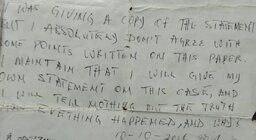 I WAS GIVING A COPY OF THE STATEMENT
BUT I ABSOLUTELY DON'T AGREE WITH
SOME POINTS WRITTEN ON THIS PAPER.
I MAINTAIN THAT I WILL GIVE MY
OWN STATEMENT ON THIS CASE, AND
I WILL TELL NOTHING BUT THE TRUTH
EVETHING HAPPENED, AND
10-10-2018